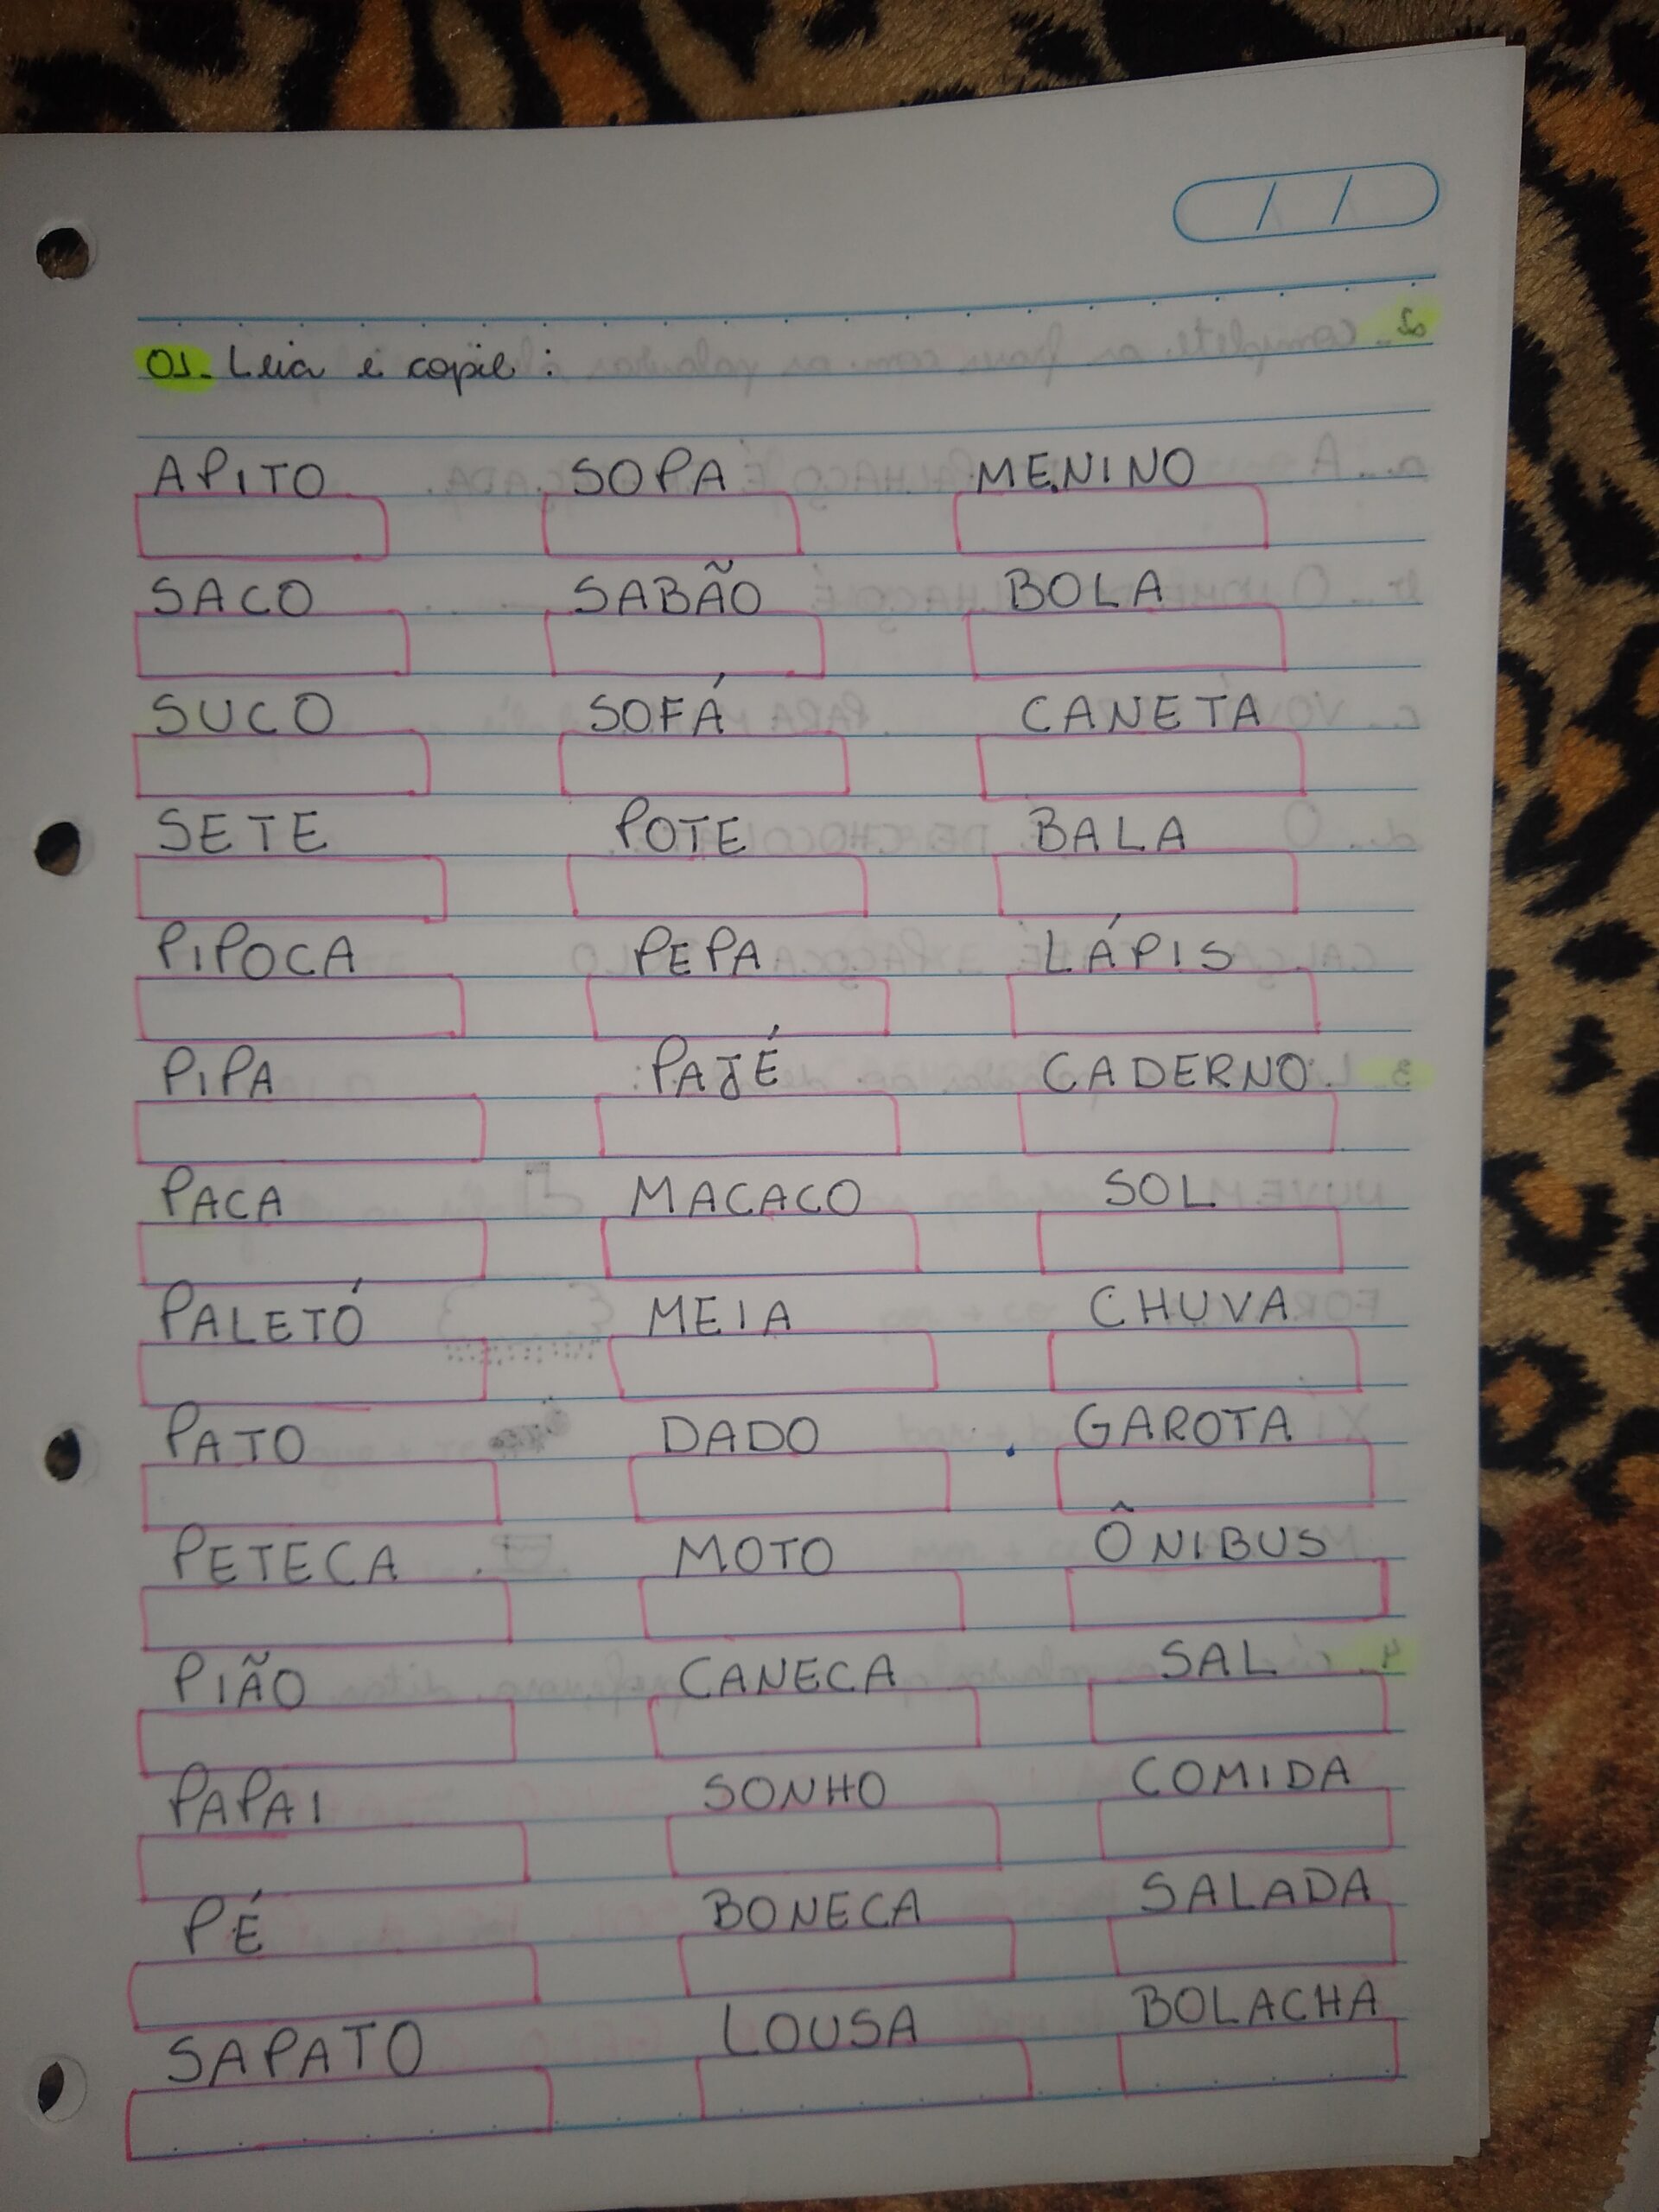 01. Leia e copie:
APITO SOPA MENINO
SACO SABÃO BOLA
SUCO SOFÁ CANETA
SETE POTE BALA
PIPOCA PEPA LÁPIS
PIPA PAJÉ CADERNO
PACA MACACO SOL
PALETÓ MEIA CHUVA
PATO DADO GAROTA
PETECA MOTO ÔNIBUS
PIÃO CANECA SAL
PAPAI SONHO COMIDA
PÉ BONECA SALADA
SAPATO LOUSA BOLACHA